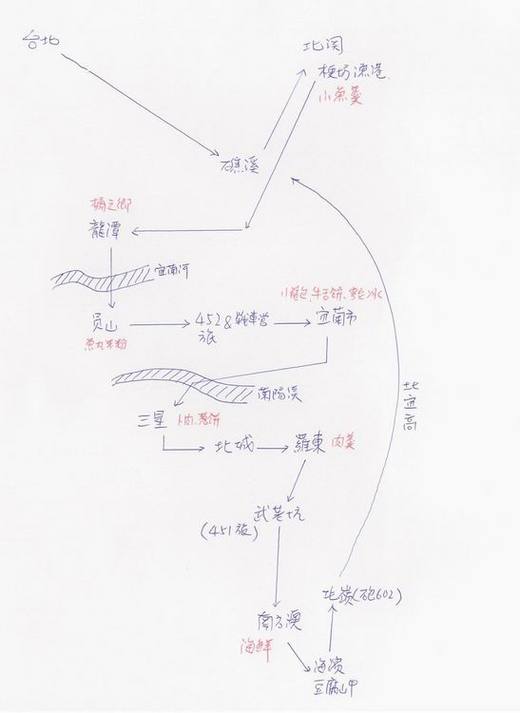 台北
北関
梗坊漁港
小魚羹
礁溪
橘之鄉
龍潭
宜蘭河
员山
魚丸米粉
452&
旅
小籠包、牛舌餅、
宜蘭市
蘭陽溪
三星
卜肉、葱餅
北城
羅東
肉羹
武荖坑
(451旅)
北宜高
南方澳
海鮮
(砲602)
海濱
豆腐岬